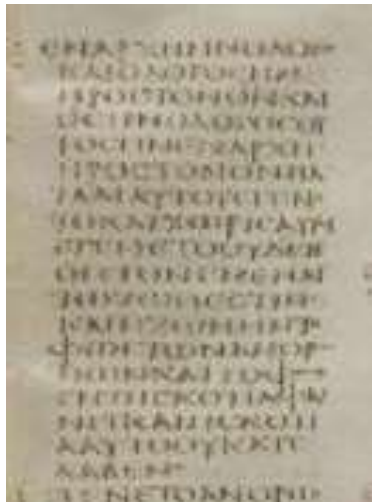 ΕΝΑΡΧΗΗΝΟΛΟΓΟ
ΚΑΙΟΛΟΓΟCΗΝ
ΠΡΟCΤΟΝΘΝΚΑΙ
ΘCΗΝΟΛΟΓΟCΟΥ
ΤΟCΗΝΕΝΑΡΧΗ
ΠΡΟCΤΟΝΘΝΠΑ
ΤΑΔΙΑΥΤΟΥΕΓΕΝΕ
ΤΟΚΑΙΧΩΡΙCΑΥΤΟΥ
ΕΓΕΝΕΤΟΟΥΔΕΝ
ΟΓΕΓΟΝΕΝΕΝΑΥ
ΤΩΖΩΗΕCΤΙΝ
ΚΑΙΗΖΩΗΗΝΤΟ
ΦΩCΤΩΝΑΝΘΡΩ
ΠΩΝΚΑΙΤΟΦΩC
ΕΝΤΗCΚΟΤΙΑΦΑΙ
ΝΕΙΚΑΙΗCΚΟΤΙ
ΑΑΥΤΟΟΥΚΑΤΕ
ΛΑΒΕΝ
ΕΓΕΝΕΤΟΑΝΘΡΩ